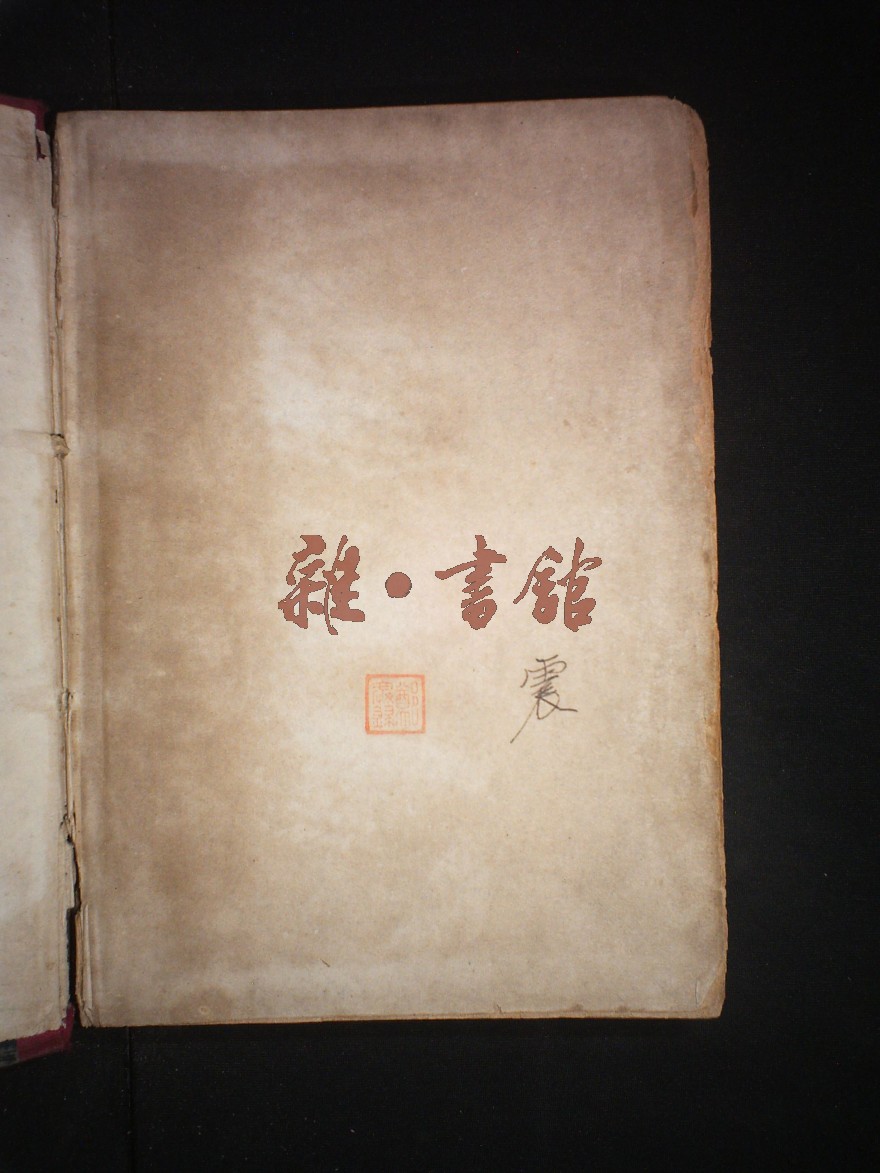 雜·書館
震